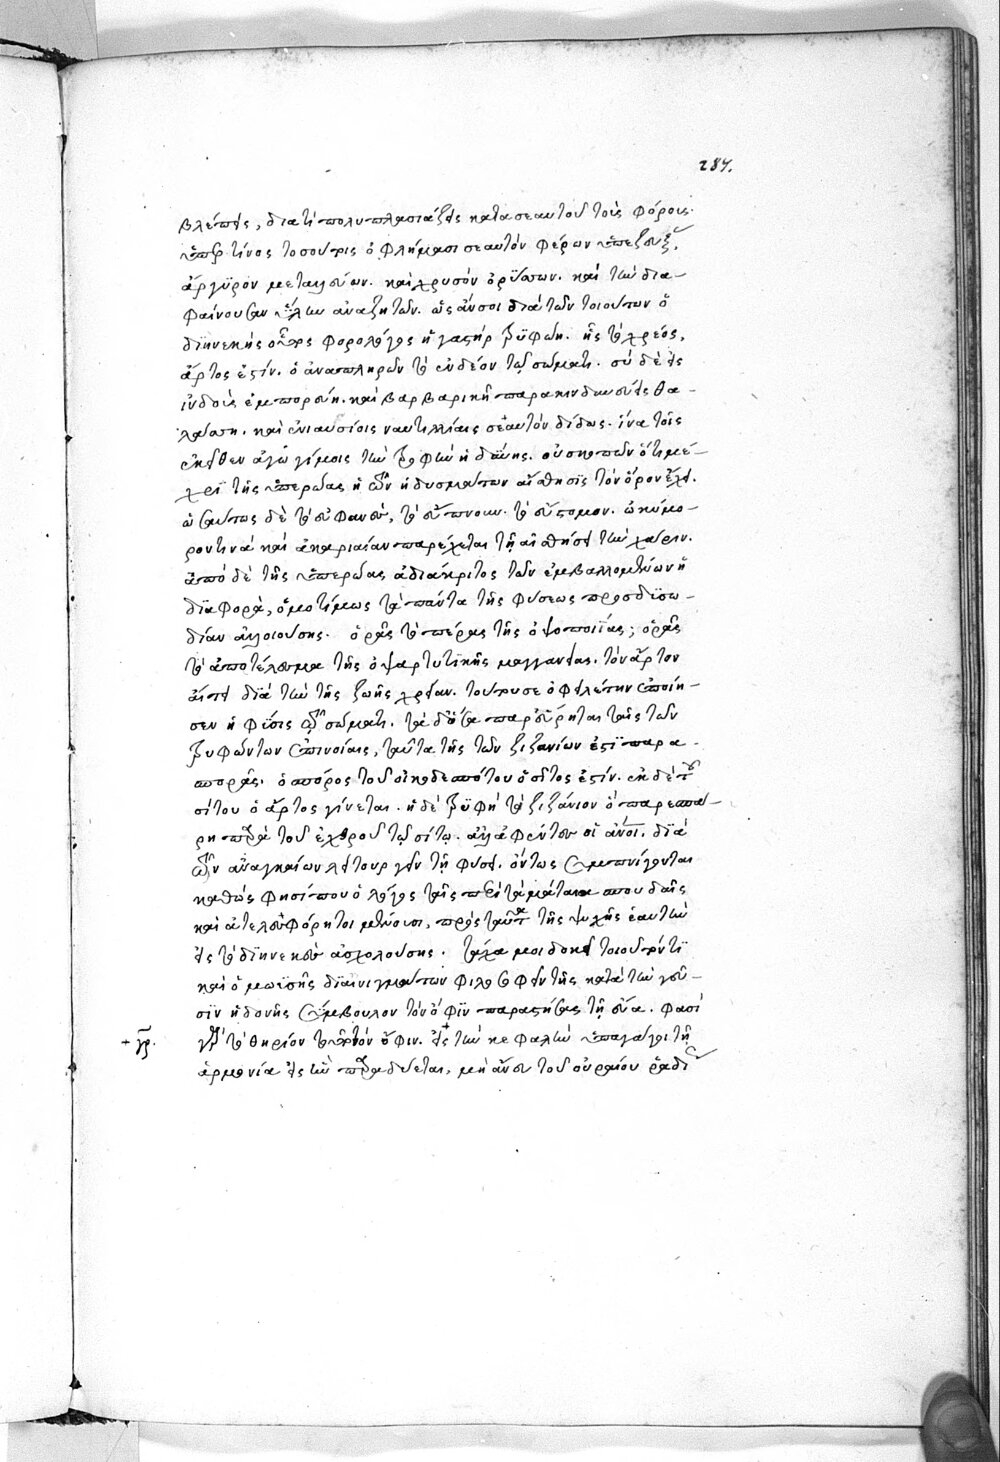 287.
βλέπεις, διατί πολυπλασιάζεις κατα σεαυτοῦ τοὺς φόρους.
ὑπὲρ τίνος τοσούτοις ὀφλήμασι σεαυτὸν φέρων ὑπέζευξας,
ἄργυρον μεταλλεύων. καὶ χρυσὸν ὀρύσσων. καὶ τὴν δια-
φαίνουσαν ὕλην ἀναζητῶν. ὡς ἄν σοι διὰ τῶν τοιούτων ὁ
διηνεκὴς οὗτος φορολόγος ἡ γαστὴρ τρυφώη. ἧς τὸ χρέος,
ἄρτος ἐστίν. ὁ ἀναπληρῶν τὸ ἐνδέον τῷ σώματι. σὺ δὲ εἰς
ἰνδοὺς ἐμπορεύῃ. καὶ βαρβαρικῇ παρακινδυνεύεις θα-
λάσσῃ. καὶ ἐνιαυσίοις ναυτιλλίαις σεαυτὸν δίδως. ἵνα τοῖς
ἐκεῖθεν ἀγωγίμοις τὴν τροφὴν ἡδύνῃς. οὐ σκοπῶν ὅτι μέ-
χρι τῆς ὑπερώας ἡ τῶν ἡδυσμάτων αἴσθησις τὸν ὅρον ἔχει.
ὡσαύτως δὲ τὸ εὐφανὲς, τὸ εὔπνουν. τὸ εὔστομον. ὠκύμο-
ρον τινὰ καὶ ἀκαριαίαν παρέχεται τῇ αἰσθήσει τὴν χάριν.
ἀπὸ δὲ τῆς ὑπερώας ἀδιάκριτος τῶν ἐμβαλλομένων ἡ
διαφορὰ, ὁμοτίμως τὰ πάντα τῆς φύσεως πρὸς δυσω-
δίαν ἀλλοιούσης. ὁρᾷς τὸ πέρας τῆς ὀψοποιΐας; ὁρᾷς
τὸ ἀποτέλεσμα τῆς ὀψαρτυτικῆς μαγγανείας. τὸν ἄρτον
αἴτει διὰ τὴν τῆς ζωῆς χρείαν. τούτου σε ὀφειλέτην ἐποίη-
σεν ἡ φύσις τῷ σώματι. τὰ δ' ὅσα παρεύρηται ταῖς τῶν
τρυφώντων ἐπινοίαις, ταῦτα τῆς τῶν ζιζανίων ἐστὶ παρα-
σπορᾶς. ὁ σπόρος τοῦ οἰκοδεσπότου ὁ σῖτος ἐστίν. ἐκ δὲ τοῦ
σίτου ὁ ἄρτος γίνεται. ἡ δὲ τρυφὴ τὸ ζιζάνιον ὃ παρεσπά-
ρη παρὰ τοῦ ἐχθροῦ τῷ σίτῳ. ἀλλ' ἀφέντες οἱ ἄνοι. διὰ
τῶν ἀναγκαίων λειτουργεῖν τῇ φύσει. ὄντως συμπνίγονται
καθώς φησί που ὁ λόγος ταῖς περὶ τὰ μάταια σπουδαῖς
καὶ ἀτελεσφόρητοι μένουσι, πρὸς ταῦτα τῆς ψυχῆς ἑαυτῶν
εἰς τὸ διηνεκὲς ἀσχολούσης. τάχα μοι δοκεῖ τοιοῦτόν τι
καὶ ὁ μωϋσῆς δι' αἰνιγμάτων φιλοσοφεῖν τῆς κατὰ τὴν γεῦ-
σιν ἡδονῆς σύμβουλον τὸν ὄφιν παραστήσας τῇ εὔα. φασὶ
+ γρ. γὰρ τὸ θηρίον τοῦτο τὸν ὄφιν. εἰ+ τὴν κεφαλὴν ὑπαγάγοι τῇ
ἁρμονίᾳ εἰς ἣν παραδύεται, μὴ ἄν ἐκ τοῦ οὐραίου ῥαδί